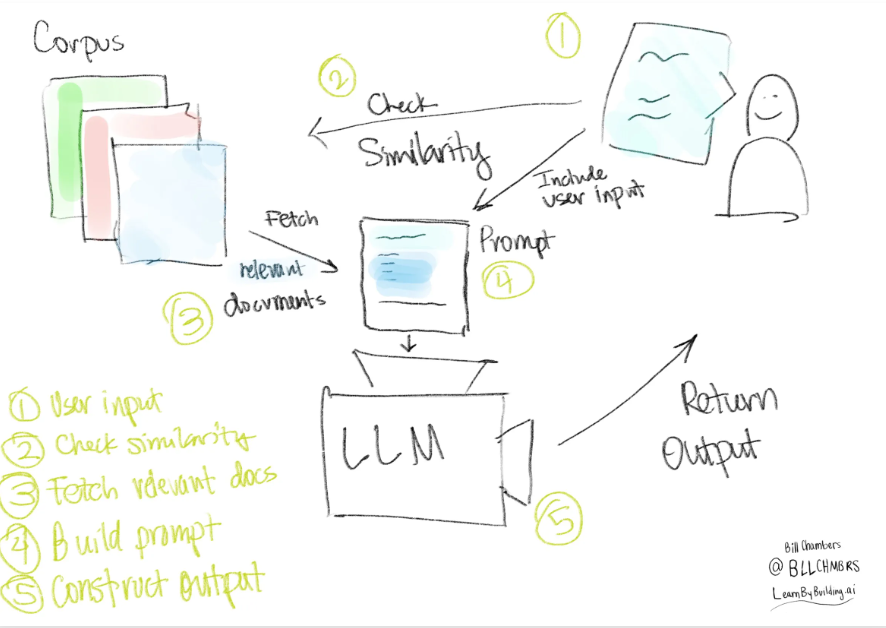 Corpus
1
2
Check
Similarity
Include
user input
Fetch
relevant
documents
3
Prompt
4
LLM
Return
Output
5
1 User input
2 Check similarity
3 Fetch relevant docs
4 Build prompt
5 Construct output
Bill Chambers
@ BLLCHMBRS
LearnByBuilding.ai